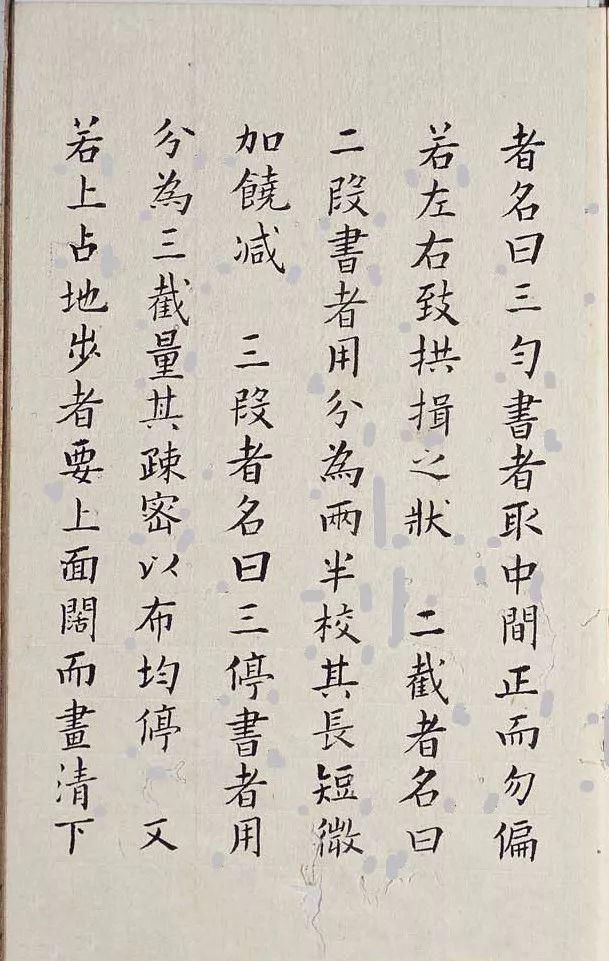 者名曰三勻書者取中間正而勿偏
若左右致拱揖之狀　二截者名曰
二段書者用分為兩半校其長短微
加饒減　三段者名曰三停書者用
分為三截量其疎密以布均停　又
若上占地步者要上面闊而畫清下